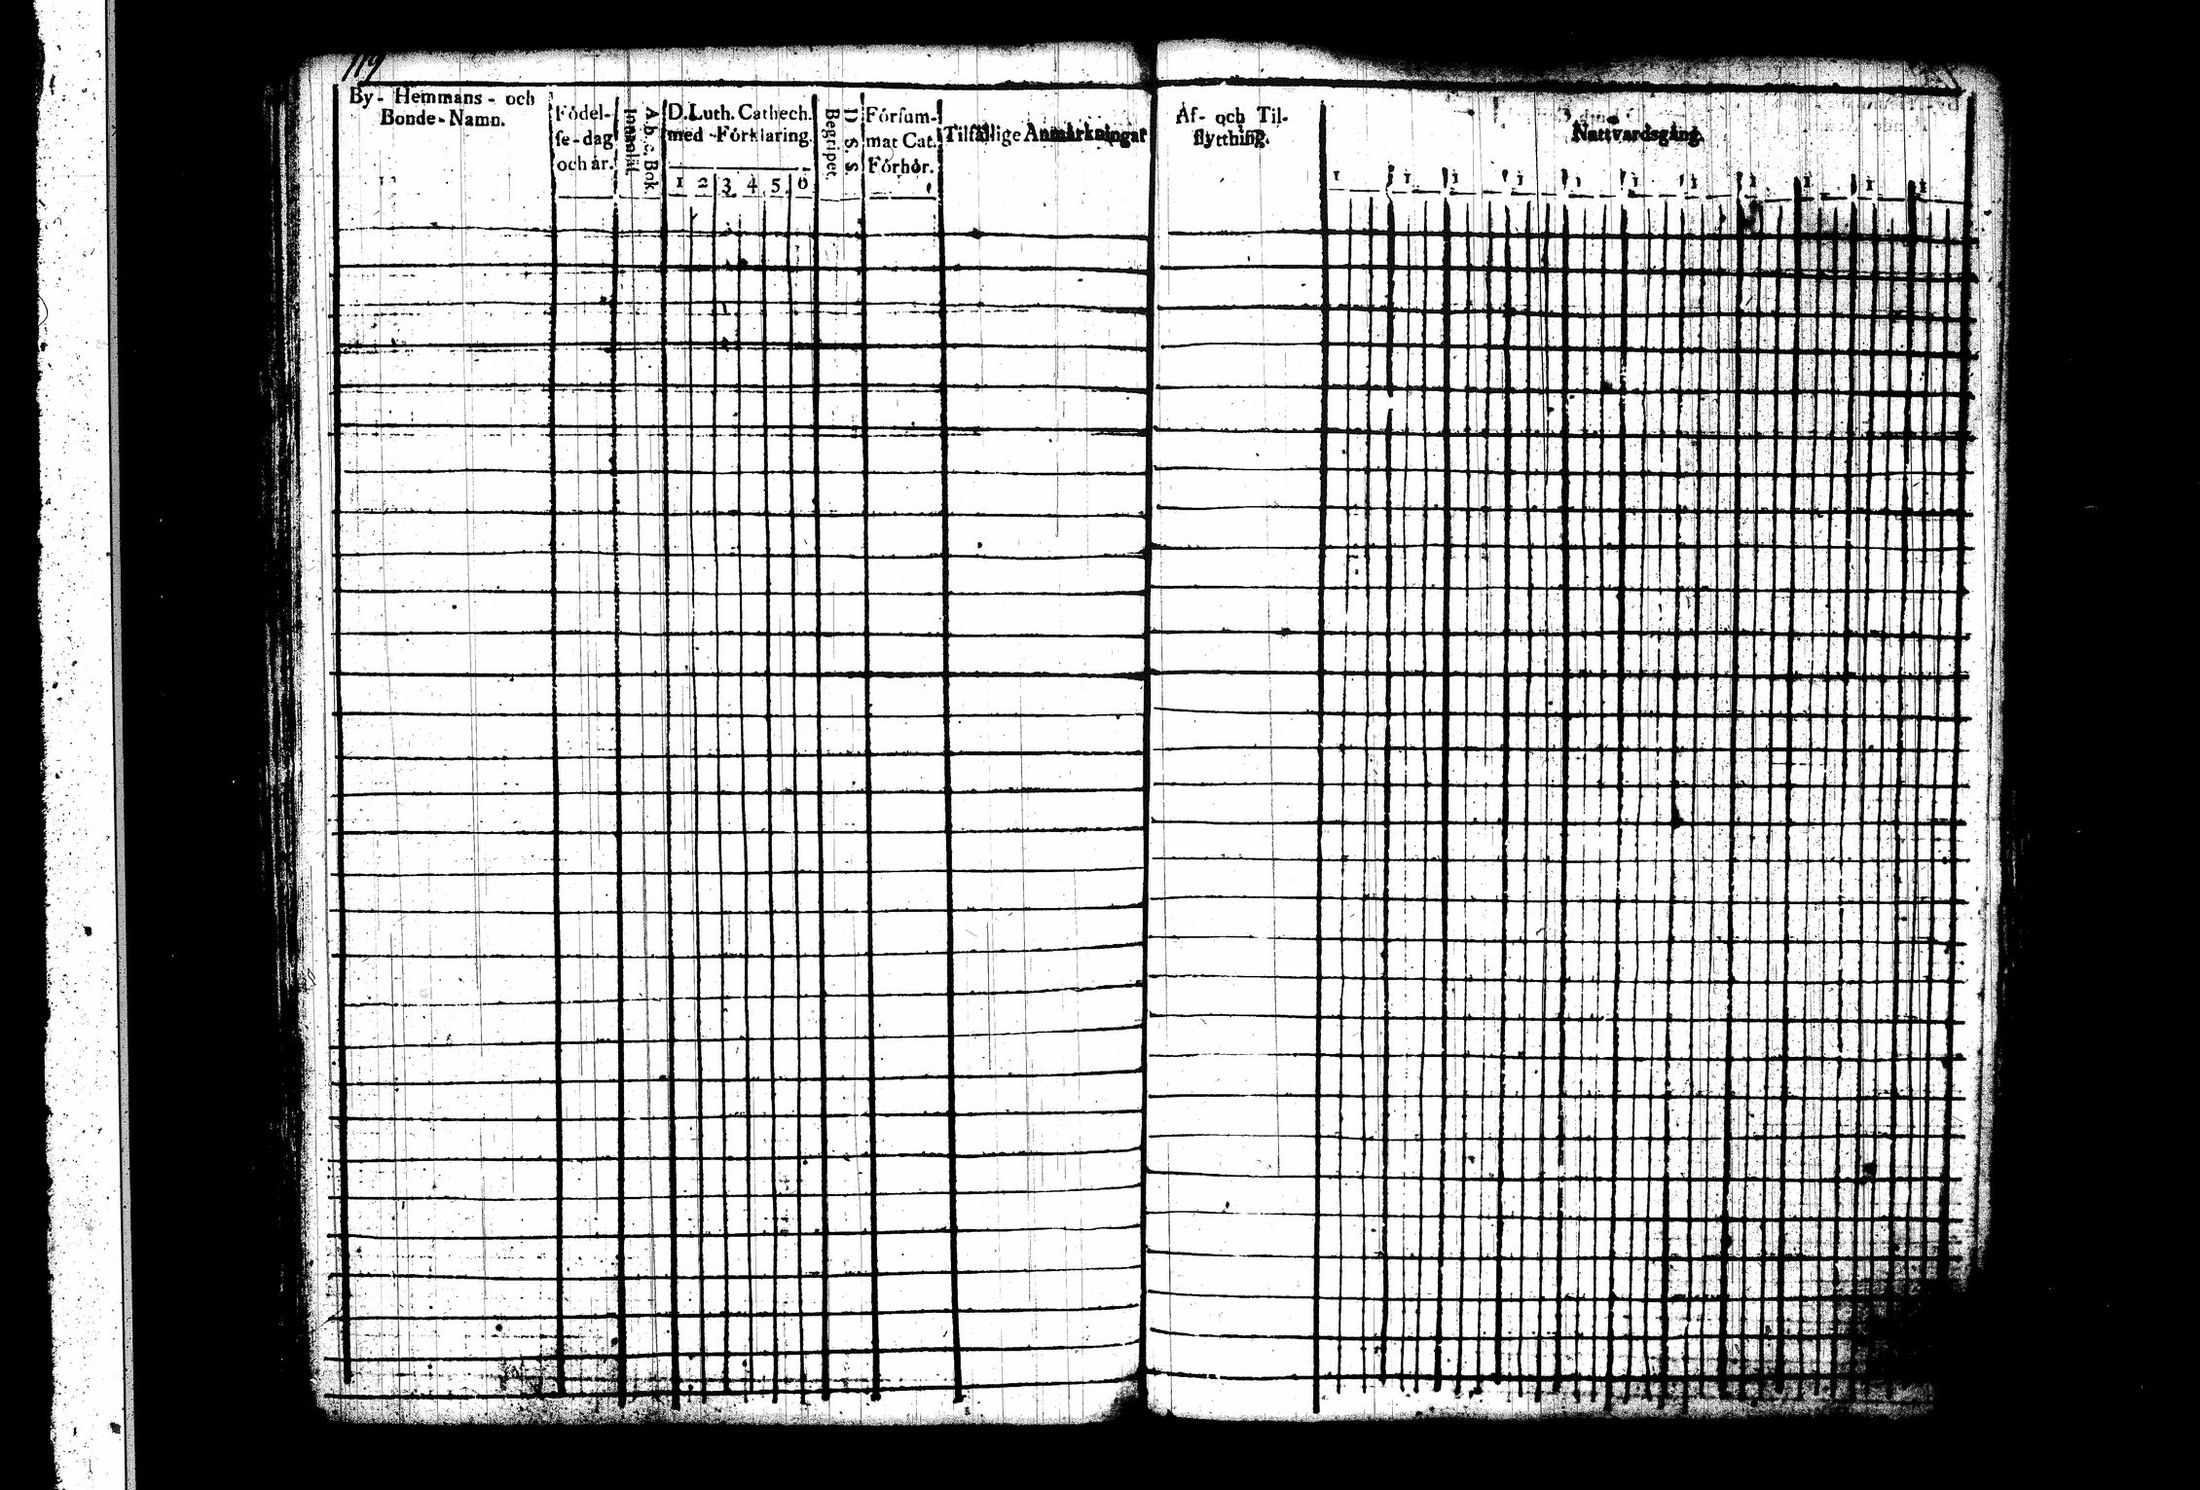 119
By- Hemmans- och
Bonde-Namn.
Födel-
se-dag
och år.
A.b.c.Bok
Innanläs
D. Luth. Cathech.
med Förklaring.
1 2 3 4 5 6
D. S. S.
Begripet.
Försum-
mat Cat.
Förhör.
Tilfällige Anmärkningar
Af- och Til-
flyttning.
Nattvardsgång.
1 1 1 1 1 1 1 1 1 1 1